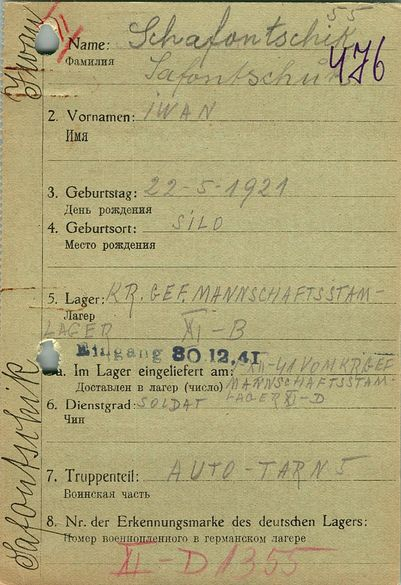 55
Name: Schafontschik
Фамилия
Safontschuk
476
2. Vornamen: IWAN
Имя
3. Geburtstag: 22-5-1921
День рождения
4. Geburtsort: SILO
Место рождения
5. Lager: KR. GEF. MANNSCHAFTSSTAM-
Лагер
LAGER XI-B
Eingang 30.12.41
a. Im Lager eingeliefert am: XII-41 VOM KR GEF
Доставлен в лагер (число) MANNSCHAFTSSTAM-
LAGER XI-D
6. Dienstgrad: SOLDAT
Чин
7. Truppenteil: AUTO-TARN 5
Воинская часть
8. Nr. der Erkennungsmarke des deutschen Lagers:
Номер военнопленного в германском лагере
XI-D 1355
Iwan
Safontschik